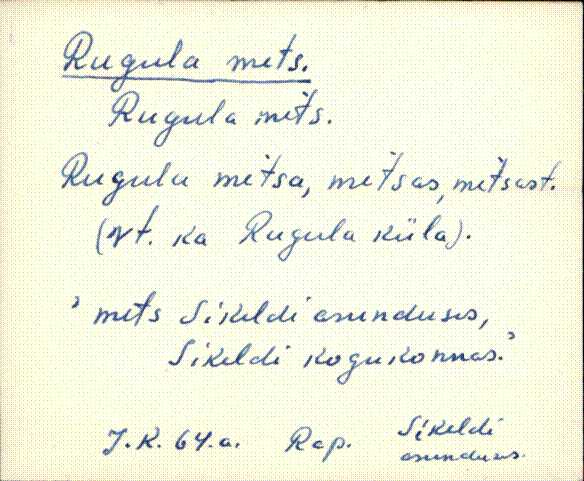 Rugula mets.
Rugula mets.
Rugula metsa, metsas, metsast.
(vt. ka Rugula küla).
' mets Sikeldi asunduses,
Sikeldi kogukonnas.'
J.K. 64.a. Rap. Sikeldi
asunduses.